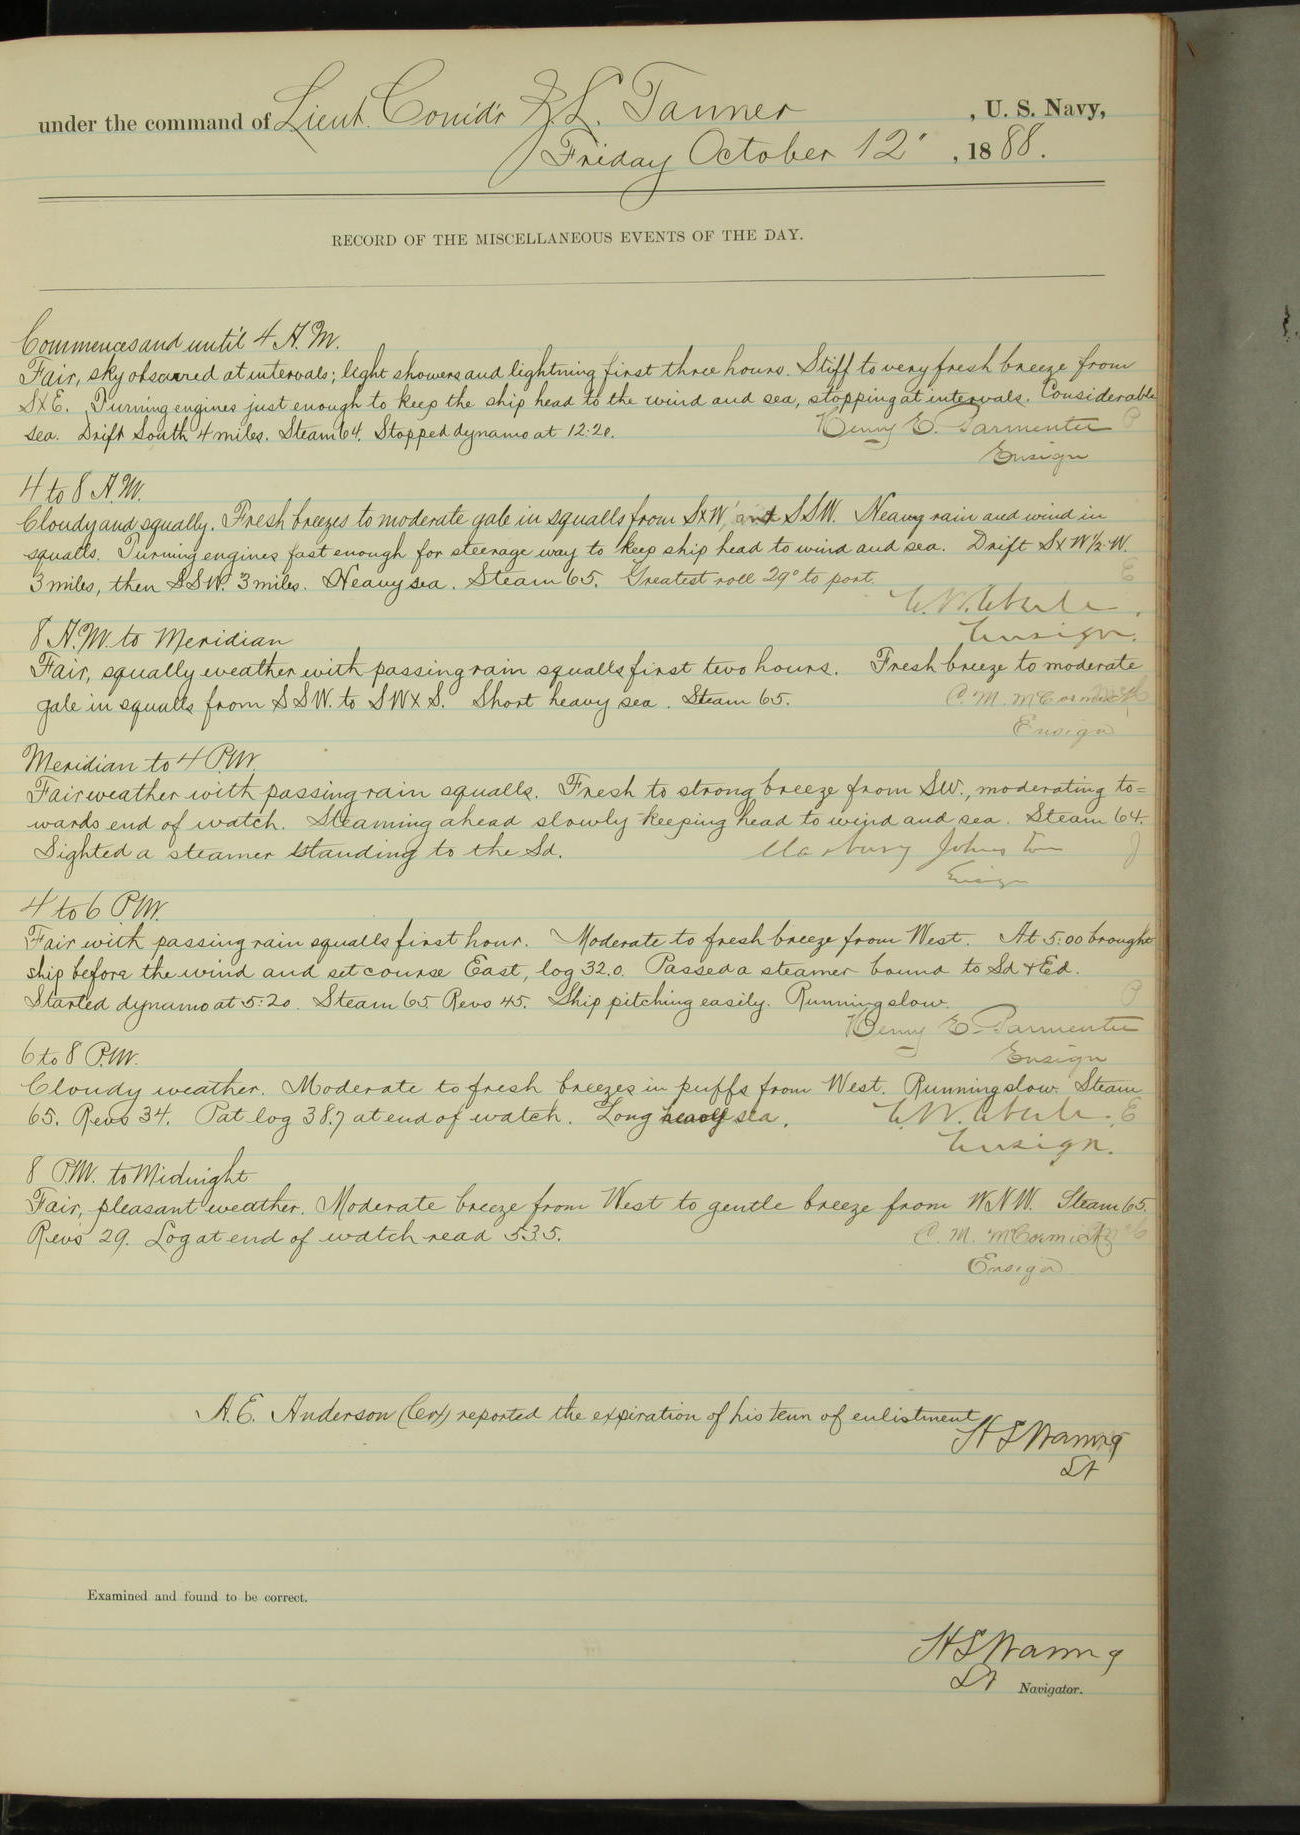 under the command of Lieut. Com'd'r Z. L. Tanner, U. S. Navy,
Friday October 12", 1888.
RECORD OF THE MISCELLANEOUS EVENTS OF THE DAY.
Commences and until 4 A.M.
Fair, sky obscured at intervals; light showers and lightning first three hours. Stiff to very fresh breeze from
SxE. Turning engines just enough to keep the ship head to the wind and sea, stopping at intervals. Considerable
sea. Drift South 4 miles. Steam 64. Stopped dynamo at 12:20.
Henry E. Parmenter P
Ensign
4 to 8 A.M.
Cloudy and squally. Fresh breezes to moderate gale in squalls from SxW, and SSW. Heavy rain and wind in
squalls. Turning engines fast enough for steerage way to keep ship head to wind and sea. Drift SxW½W.
3 miles, then SSW. 3 miles. Heavy sea. Steam 65. Greatest roll 29° to port. E
E. W. Eberle.
Ensign.
8 A.M. to Meridian
Fair, squally weather with passing rain squalls first two hours. Fresh breeze to moderate
gale in squalls from SSW. to SWxS. Short heavy sea. Steam 65. C. M. McCormick
Ensign
Meridian to 4 P.M.
Fair weather with passing rain squalls. Fresh to strong breeze from SW., moderating to=
wards end of watch. Steaming ahead slowly keeping head to wind and sea. Steam 64.
Sighted a steamer standing to the Sd. Marbury Johnston J
Ensign
4 to 6 P.M.
Fair with passing rain squalls first hour. Moderate to fresh breeze from West. At 5:00 brought
ship before the wind and set course East, log 32.0. Passed a steamer bound to Sd & Ed.
Started dynamo at 5:20. Steam 65 Revs 45. Ship pitching easily. Running slow. P
Henry E. Parmenter
Ensign
6 to 8 P.M.
Cloudy weather. Moderate to fresh breezes in puffs from West. Running slow. Steam
65. Revs 34. Pat log 38.7 at end of watch. Long heavy sea. E. W. Eberle. E
Ensign.
8 P.M. to Midnight
Fair, pleasant weather. Moderate breeze from West to gentle breeze from WNW. Steam 65.
Revs 29. Log at end of watch read 53.5. C. M. McCormick McC
Ensign
A. E. Anderson (Cox) reported the expiration of his term of enlistment
H S Waring
Lt
Examined and found to be correct.
H S Waring
Lt Navigator.